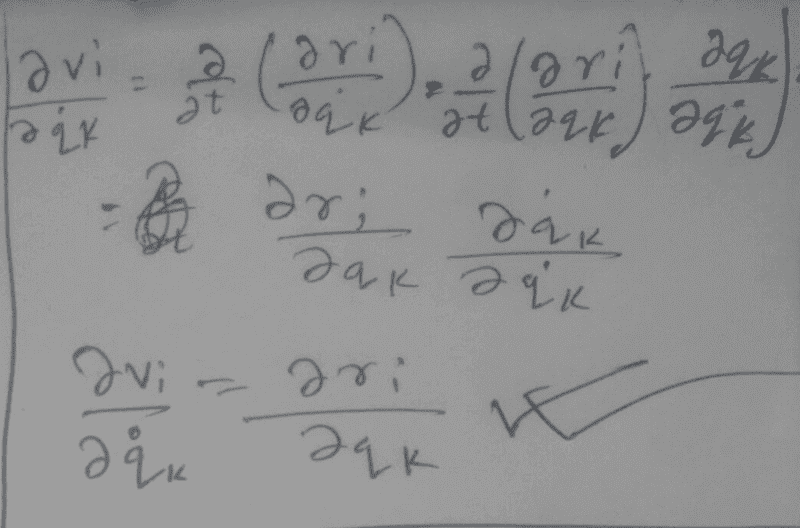 ∂vi/∂q̇K = ∂/∂t (∂ri/∂q̇K) = ∂/∂t (∂ri/∂qK · ∂qK/∂q̇K)
= ∂ri/∂qK ∂q̇K/∂q̇K
∂vi/∂q̇K = ∂ri/∂qK